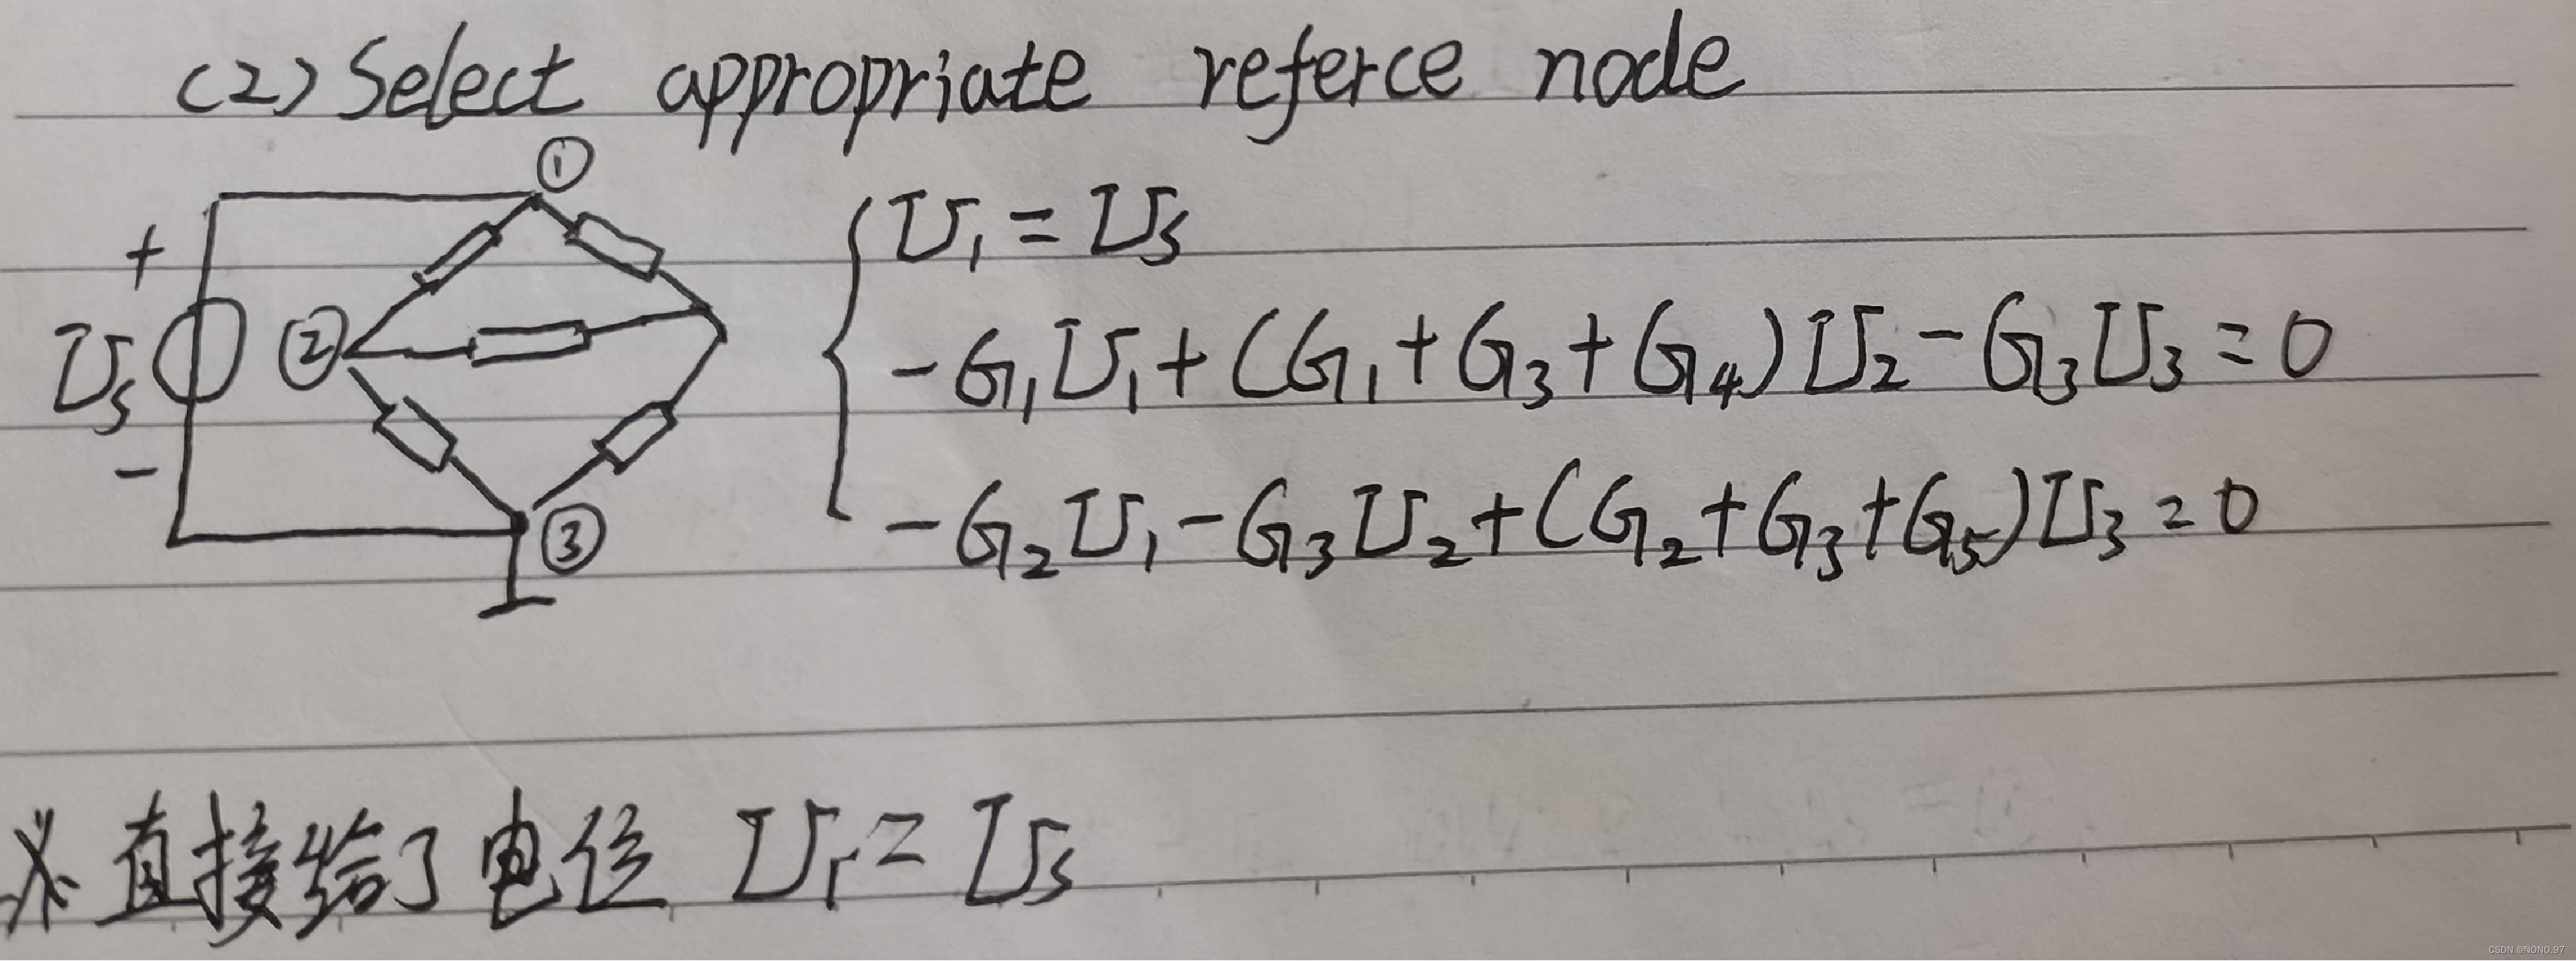 (2) Select appropriate referce node
①
U₁ = Us
+
②
Us
-G₁U₁+(G₁+G₃+G₄)U₂-G₃U₃=0
-
③
-G₂U₁-G₃U₂+(G₂+G₃+G₅)U₃=0
※直接给了电位 U₁=Us
CSDN @NONO.97